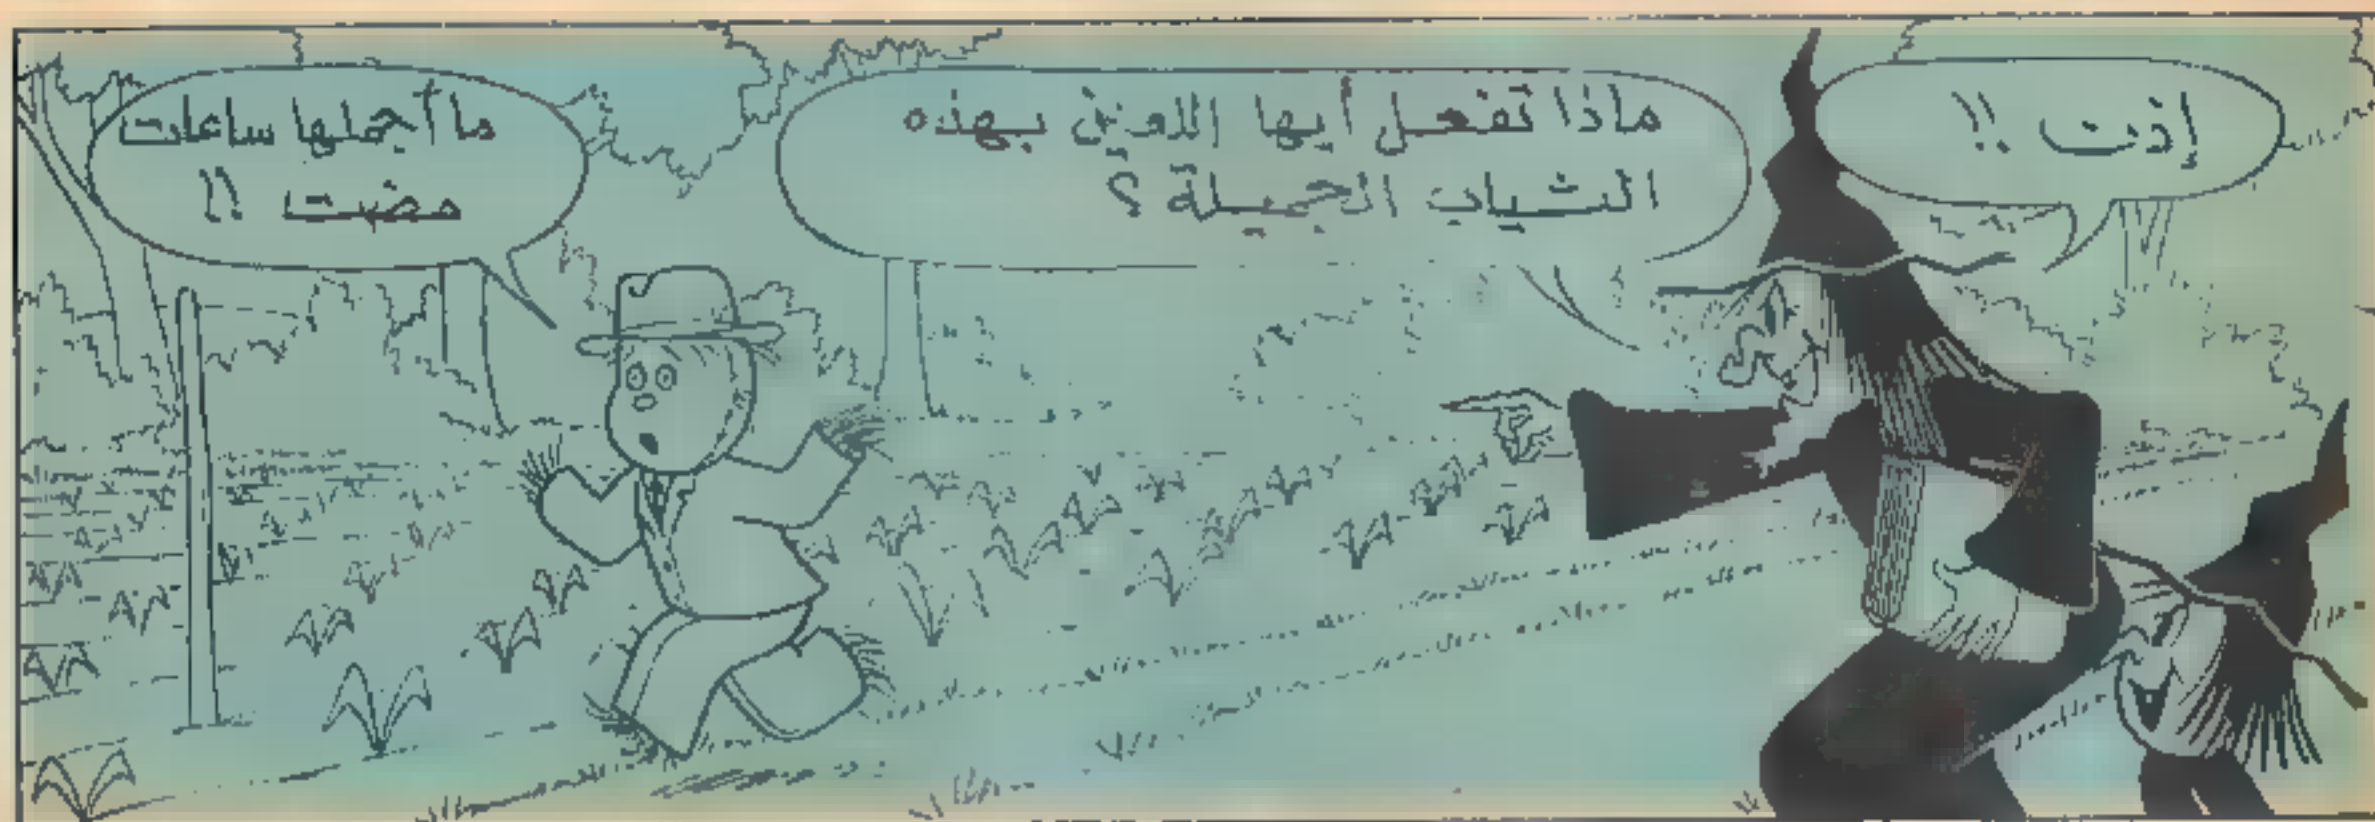 إذت !!
ماذا تفعل أيها اللعين بهذه
الثياب الجميلة ؟
ما أجملها ساعات
مضت !!